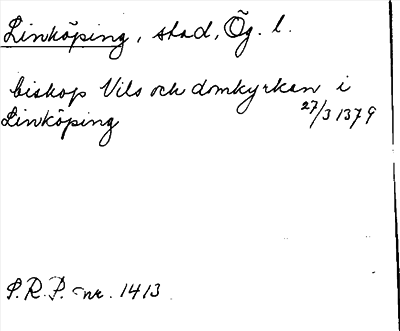 Linköping, stad, Ög. l.
biskop Nils och domkyrkan i
Linköping 27/3 1379
S.R.P. nr. 1413